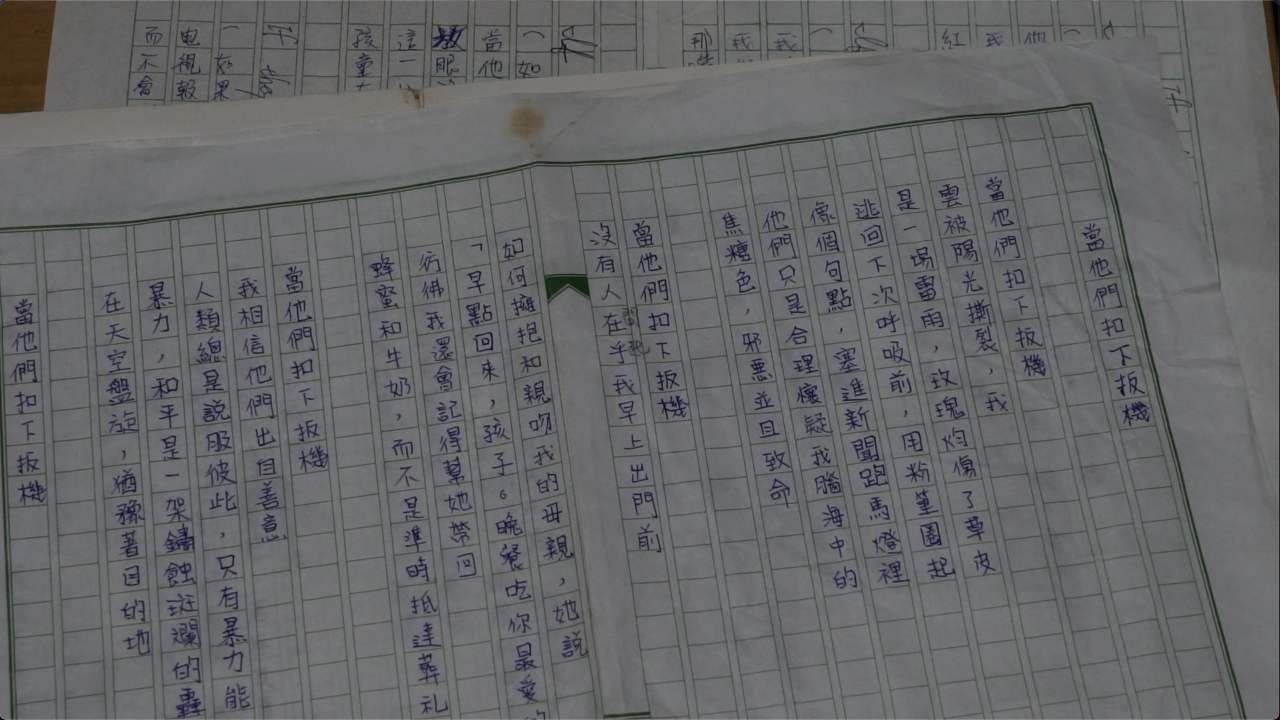 當他們扣下扳機
當他們扣下扳機
雲被陽光撕裂，我
是一場雷雨，玫瑰灼傷了草皮
逃回下次呼吸前，用粉筆圈起
像個句點，塞進新聞跑馬燈裡
他們只是合理懷疑我腦海中的
焦糖色，邪惡並且致命
當他們扣下扳機
沒有人在乎我早上出門前
如何擁抱和親吻我的母親，她說
「早點回來，孩子。晚餐吃你最愛的
彷彿我還會記得幫她帶回
蜂蜜和牛奶，而不是準時抵達葬禮
當他們扣下扳機
我相信他們出自善意
人類總是說服彼此，只有暴力能
暴力，和平是一架鏽蝕斑斕的轟
在天空盤旋，猶豫著目的地
當他們扣下扳機
紅
我
他
那
我
我
（
（如
當他
眼
這一
孩童
（如果
電視報
而不會